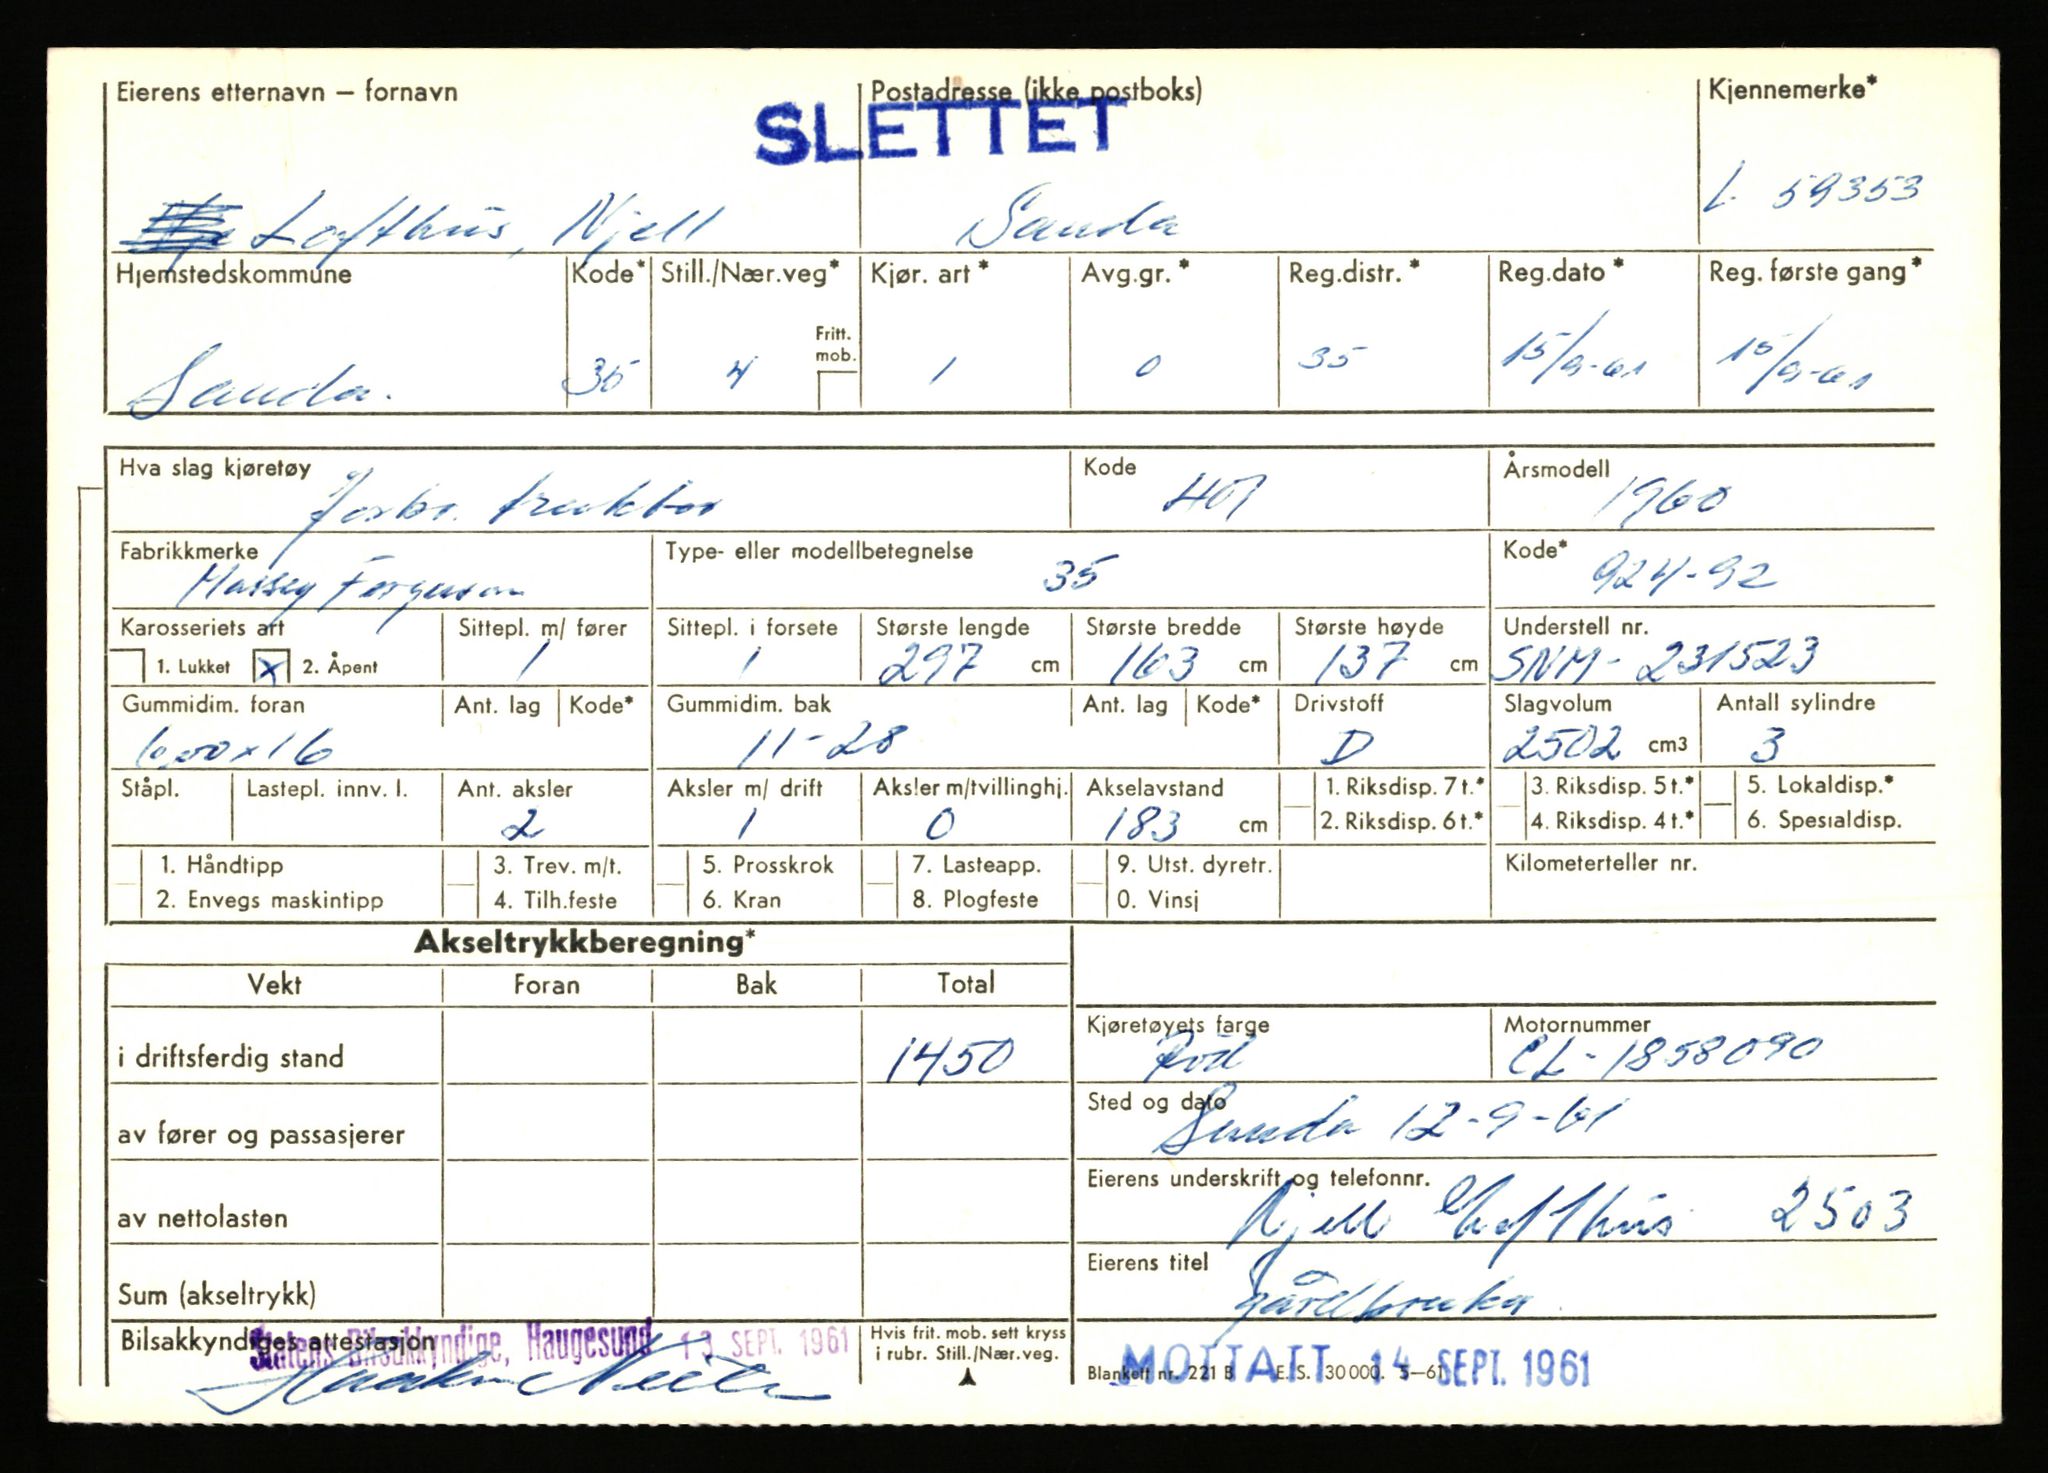 Eierens etternavn – fornavn Postadresse (ikke postboks) Kjennemerke*
SLETTET
Lofthus, Njell Sauda L 59353
Hjemstedskommune Kode* Still./Nær.veg* Kjør. art * Avg.gr.* Reg.distr.* Reg.dato * Reg. første gang*
Fritt. mob.
Sauda. 35 4 1 0 35 15/9-61 15/9-61
Hva slag kjøretøy Kode Årsmodell
Jorbr. traktor 401 1960
Fabrikkmerke Type- eller modellbetegnelse Kode*
Massey Ferguson 35 924-92
Karosseriets art Sittepl. m/ fører Sittepl. i forsete Største lengde Største bredde Største høyde Understell nr.
1. Lukket x 2. Åpent 1 1 297 cm 163 cm 137 cm SNM-231523
Gummidim. foran Ant. lag Kode* Gummidim. bak Ant. lag Kode* Drivstoff Slagvolum Antall sylindre
600x16 11-28 D 2502 cm3 3
Ståpl. Lastepl. innv. l. Ant. aksler Aksler m/ drift Aksler m/tvillinghj. Akselavstand 1. Riksdisp. 7 t.* 3. Riksdisp. 5 t.* 5. Lokaldisp.*
2 1 0 183 cm 2. Riksdisp. 6 t.* 4. Riksdisp. 4 t.* 6. Spesialdisp.
1. Håndtipp 3. Trev. m/t. 5. Prosskrok 7. Lasteapp. 9. Utst. dyretr. Kilometerteller nr.
2. Envegs maskintipp 4. Tilh.feste 6. Kran 8. Plogfeste 0. Vinsj
Akseltrykkberegning*
Vekt Foran Bak Total
Kjøretøyets farge Motornummer
i driftsferdig stand 1450 Rød CL-1858090
Sted og dato
av fører og passasjerer Sauda 12-9-61
Eierens underskrift og telefonnr.
av nettolasten Njell Lofthus 2503
Eierens titel
Sum (akseltrykk) gårdbruker
Bilsakkyndiges attestasjon Hvis frit. mob. sett kryss
i rubr. Still./Nær.veg.
Statens Bilsakkyndige, Haugesund 13 SEPT. 1961
Blankett nr. 221 B E. S. 30 000. 5–61
MOTTATT 14 SEPT. 1961